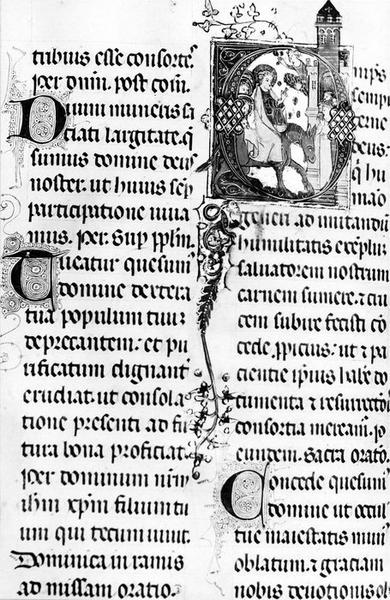 tribuis esse consortes.
Per dnm. post com.
Diuini muneris sa
ciati largitate. q̃
sumus domine deus
noster. ut huius sep
participatione uiua
mus. Per. Sup pplm.
Tueatur quesum⁹
domine dextera
tua populum tuuz
deprecantem: et pu
rificatum dignant̉
erudiat. ut consola
tione presenti ad fu
tura bona proficiat.
Per dominum nrm
ihm xpm filium tu
um qui tecum uiuit.
Dominica in ramis
ad missam oratio.
Omps
sempi
terne
deus.
q̇ hu
mao
generi ad imitandũ
humilitatis exemplũ
saluatorem nostrum
carnem sumere. ⁊ cru
cem subire fecisti cõ
cede ꝓpicius: ut ⁊ pa
cientie ipsius habe do
cumenta ⁊ resurrectõis
consortia mereamr̃. ꝑ
eundem. Sacra oratõ.
Concede quesum⁹
domine ut oculi
tue maiestatis mun⁹
oblatum. ⁊ graciam
nobis deuotionis ob